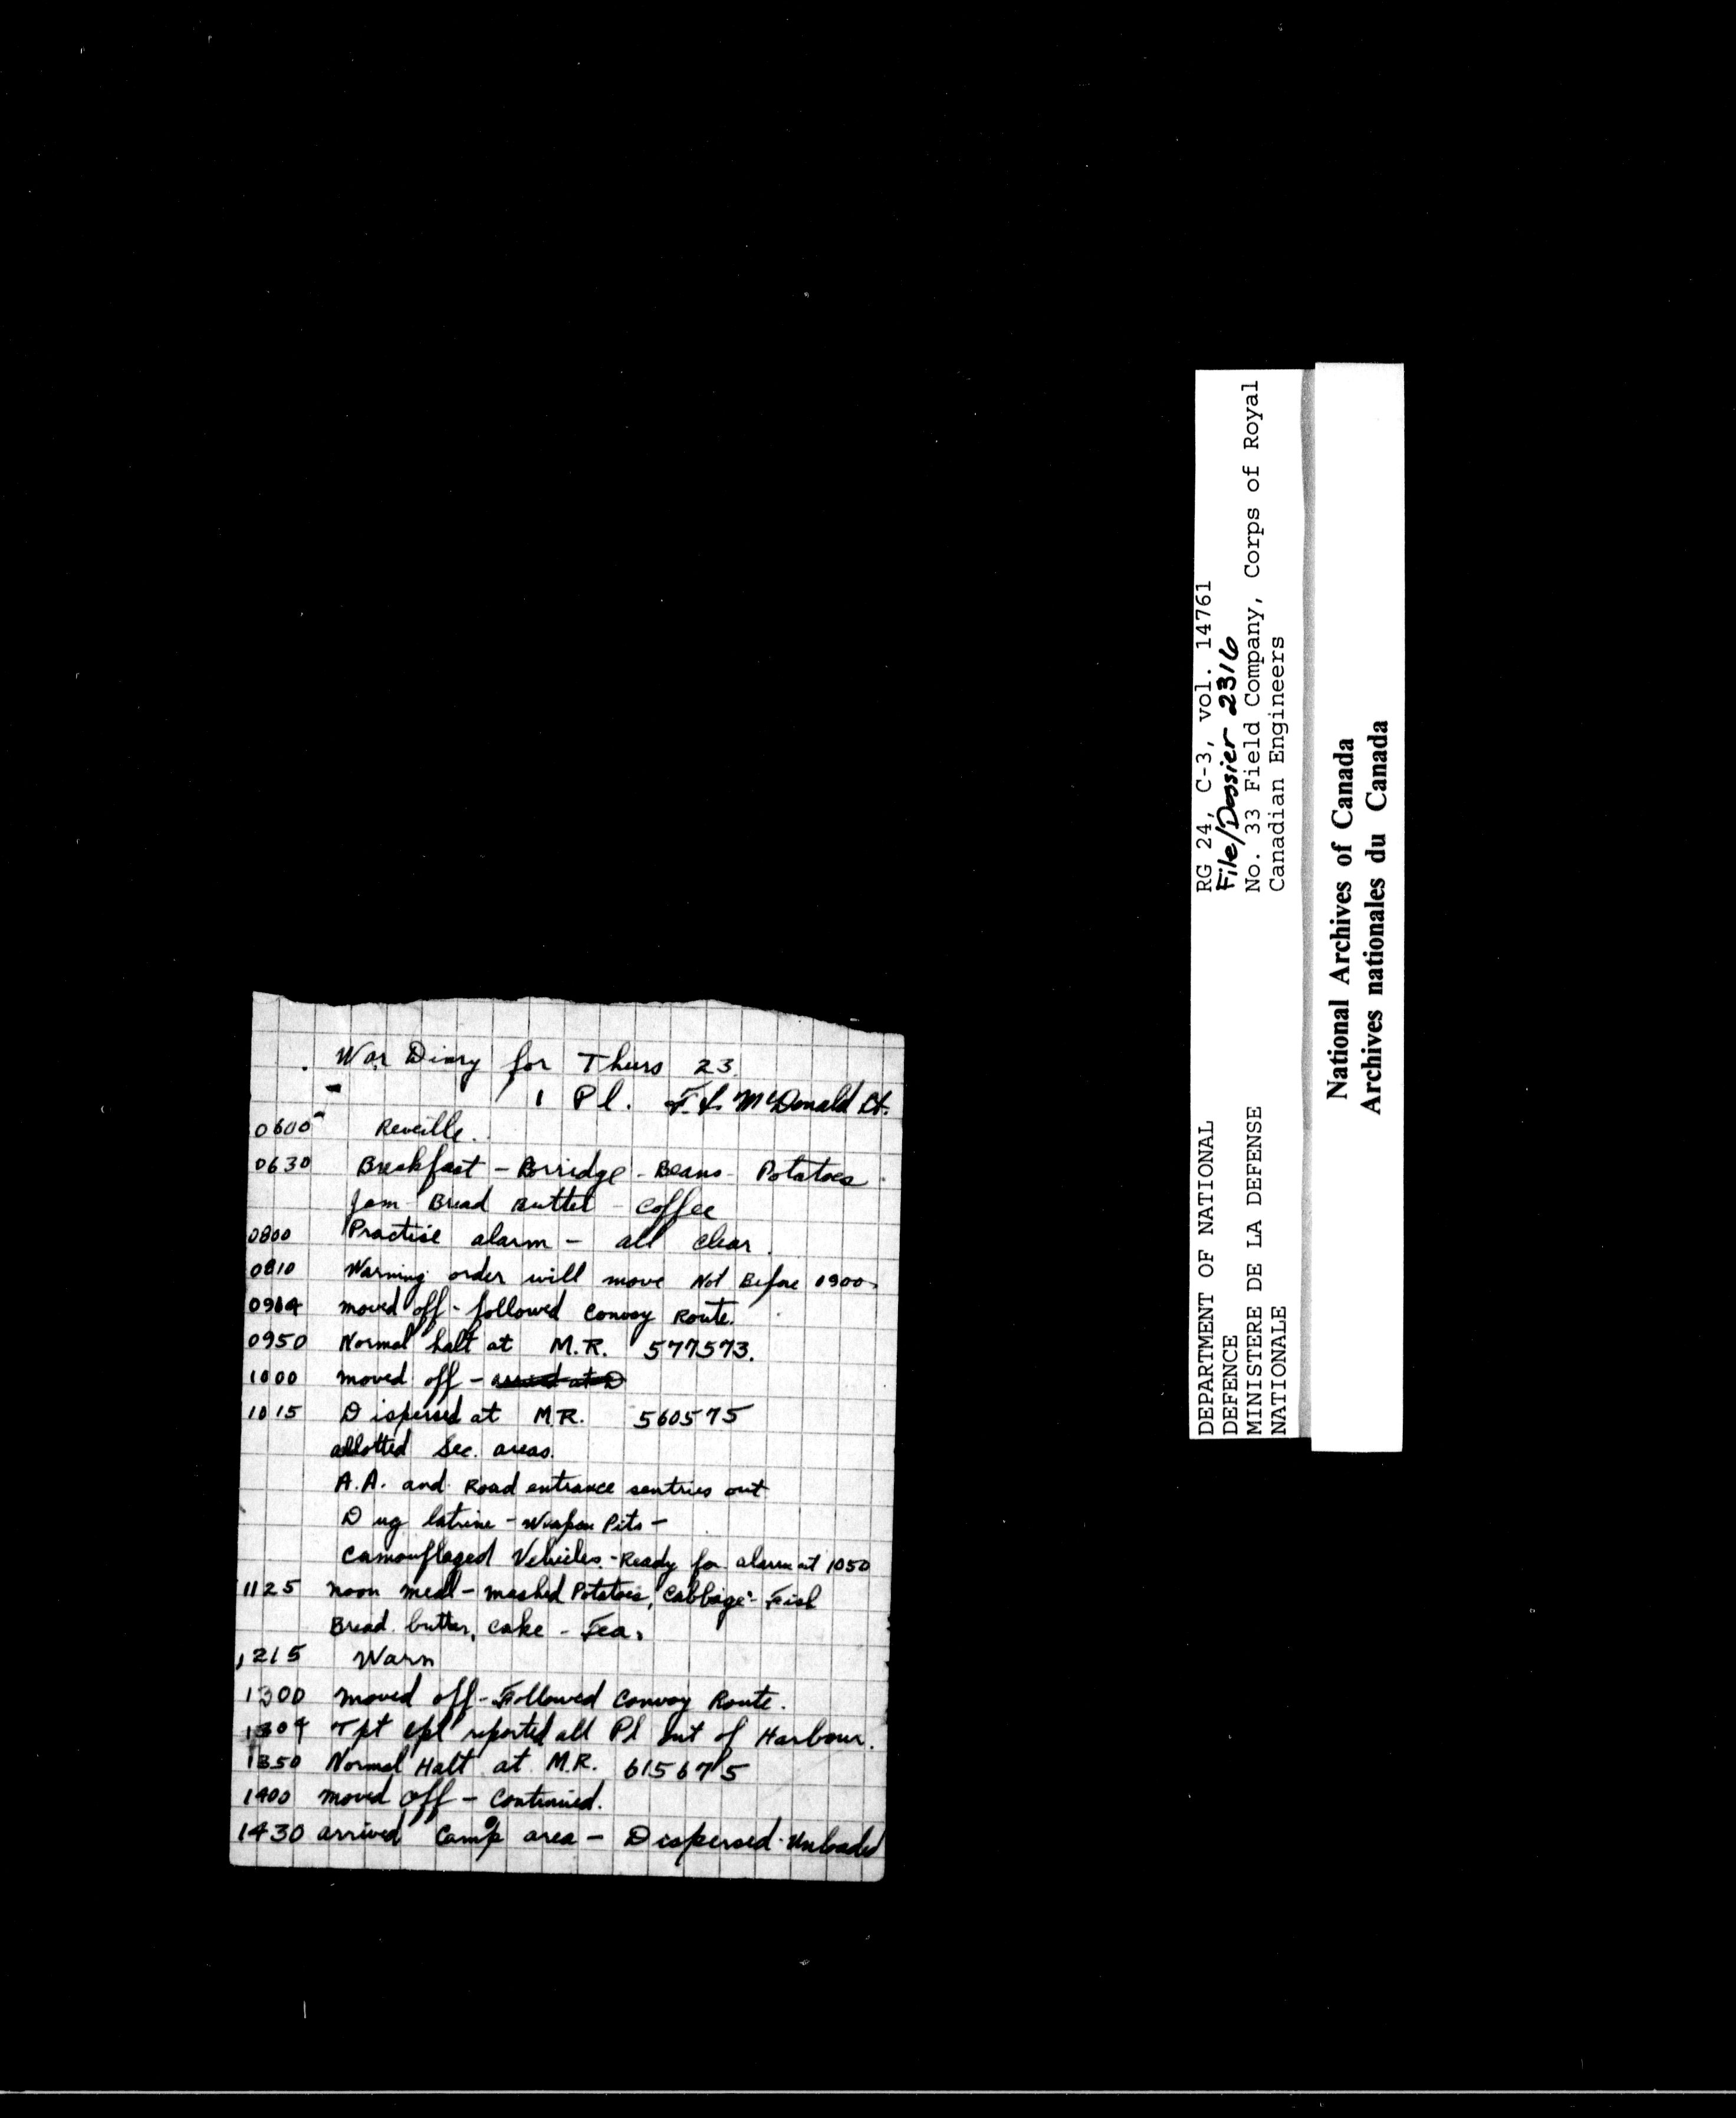 War Diary for Thurs 23.
1 Pl. F. L. McDonald Lt.
0600 Reveille.
0630 Breakfast - Porridge - Beans - Potatoes
Jam Bread Butter - Coffee
0800 Practise alarm - all clear.
0810 Warning order will move Not Before 0900.
0914 moved off - followed Convoy Route.
0950 Normal halt at M.R. 577573.
1000 moved off -
1015 Dispersed at M.R. 560575
allotted Sec. areas.
A.A. and Road entrance sentries out
Dug latrine - Weapon Pits -
Camouflaged Vehicles - Ready for alarm at 1050
1125 noon meal - mashed Potatoes, Cabbage - Fish
Bread. butter, cake - Tea.
1215 Warn
1300 moved off - Followed Convoy Route.
1304 Tpt Cpl reported all Pl out of Harbour.
1350 Normal Halt at M.R. 615675
1400 moved off - Continued.
1430 arrived Camp area - Dispersed - Unloaded
DEPARTMENT OF NATIONAL
DEFENCE
MINISTERE DE LA DEFENSE
NATIONALE
RG 24, C-3, vol. 14761
File/Dossier 2316
No. 33 Field Company, Corps of Royal
Canadian Engineers
National Archives of Canada
Archives nationales du Canada